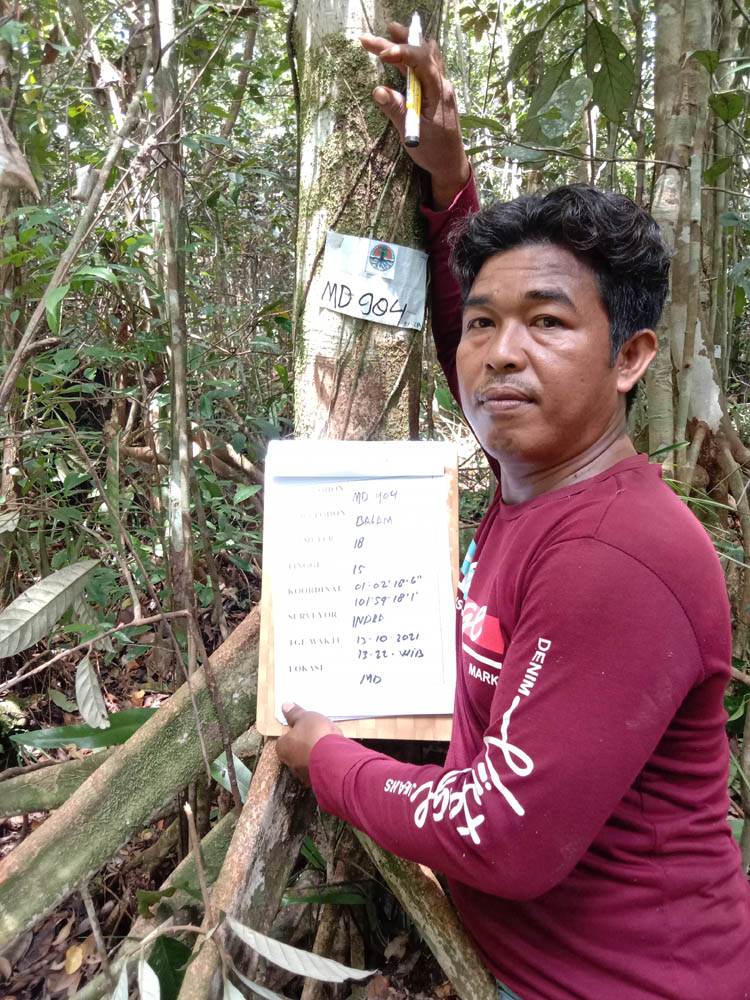 MD 904
MD 904
BALAM
18
TINGGI 15
KOORDINAT 01·02'18·6"
101·59·18'1"
SURVEYOR INDRA
TGL WAKTU 13·10·2021
13·22·WIB
LOKASI
MD
MARK
DENIM
JEANS